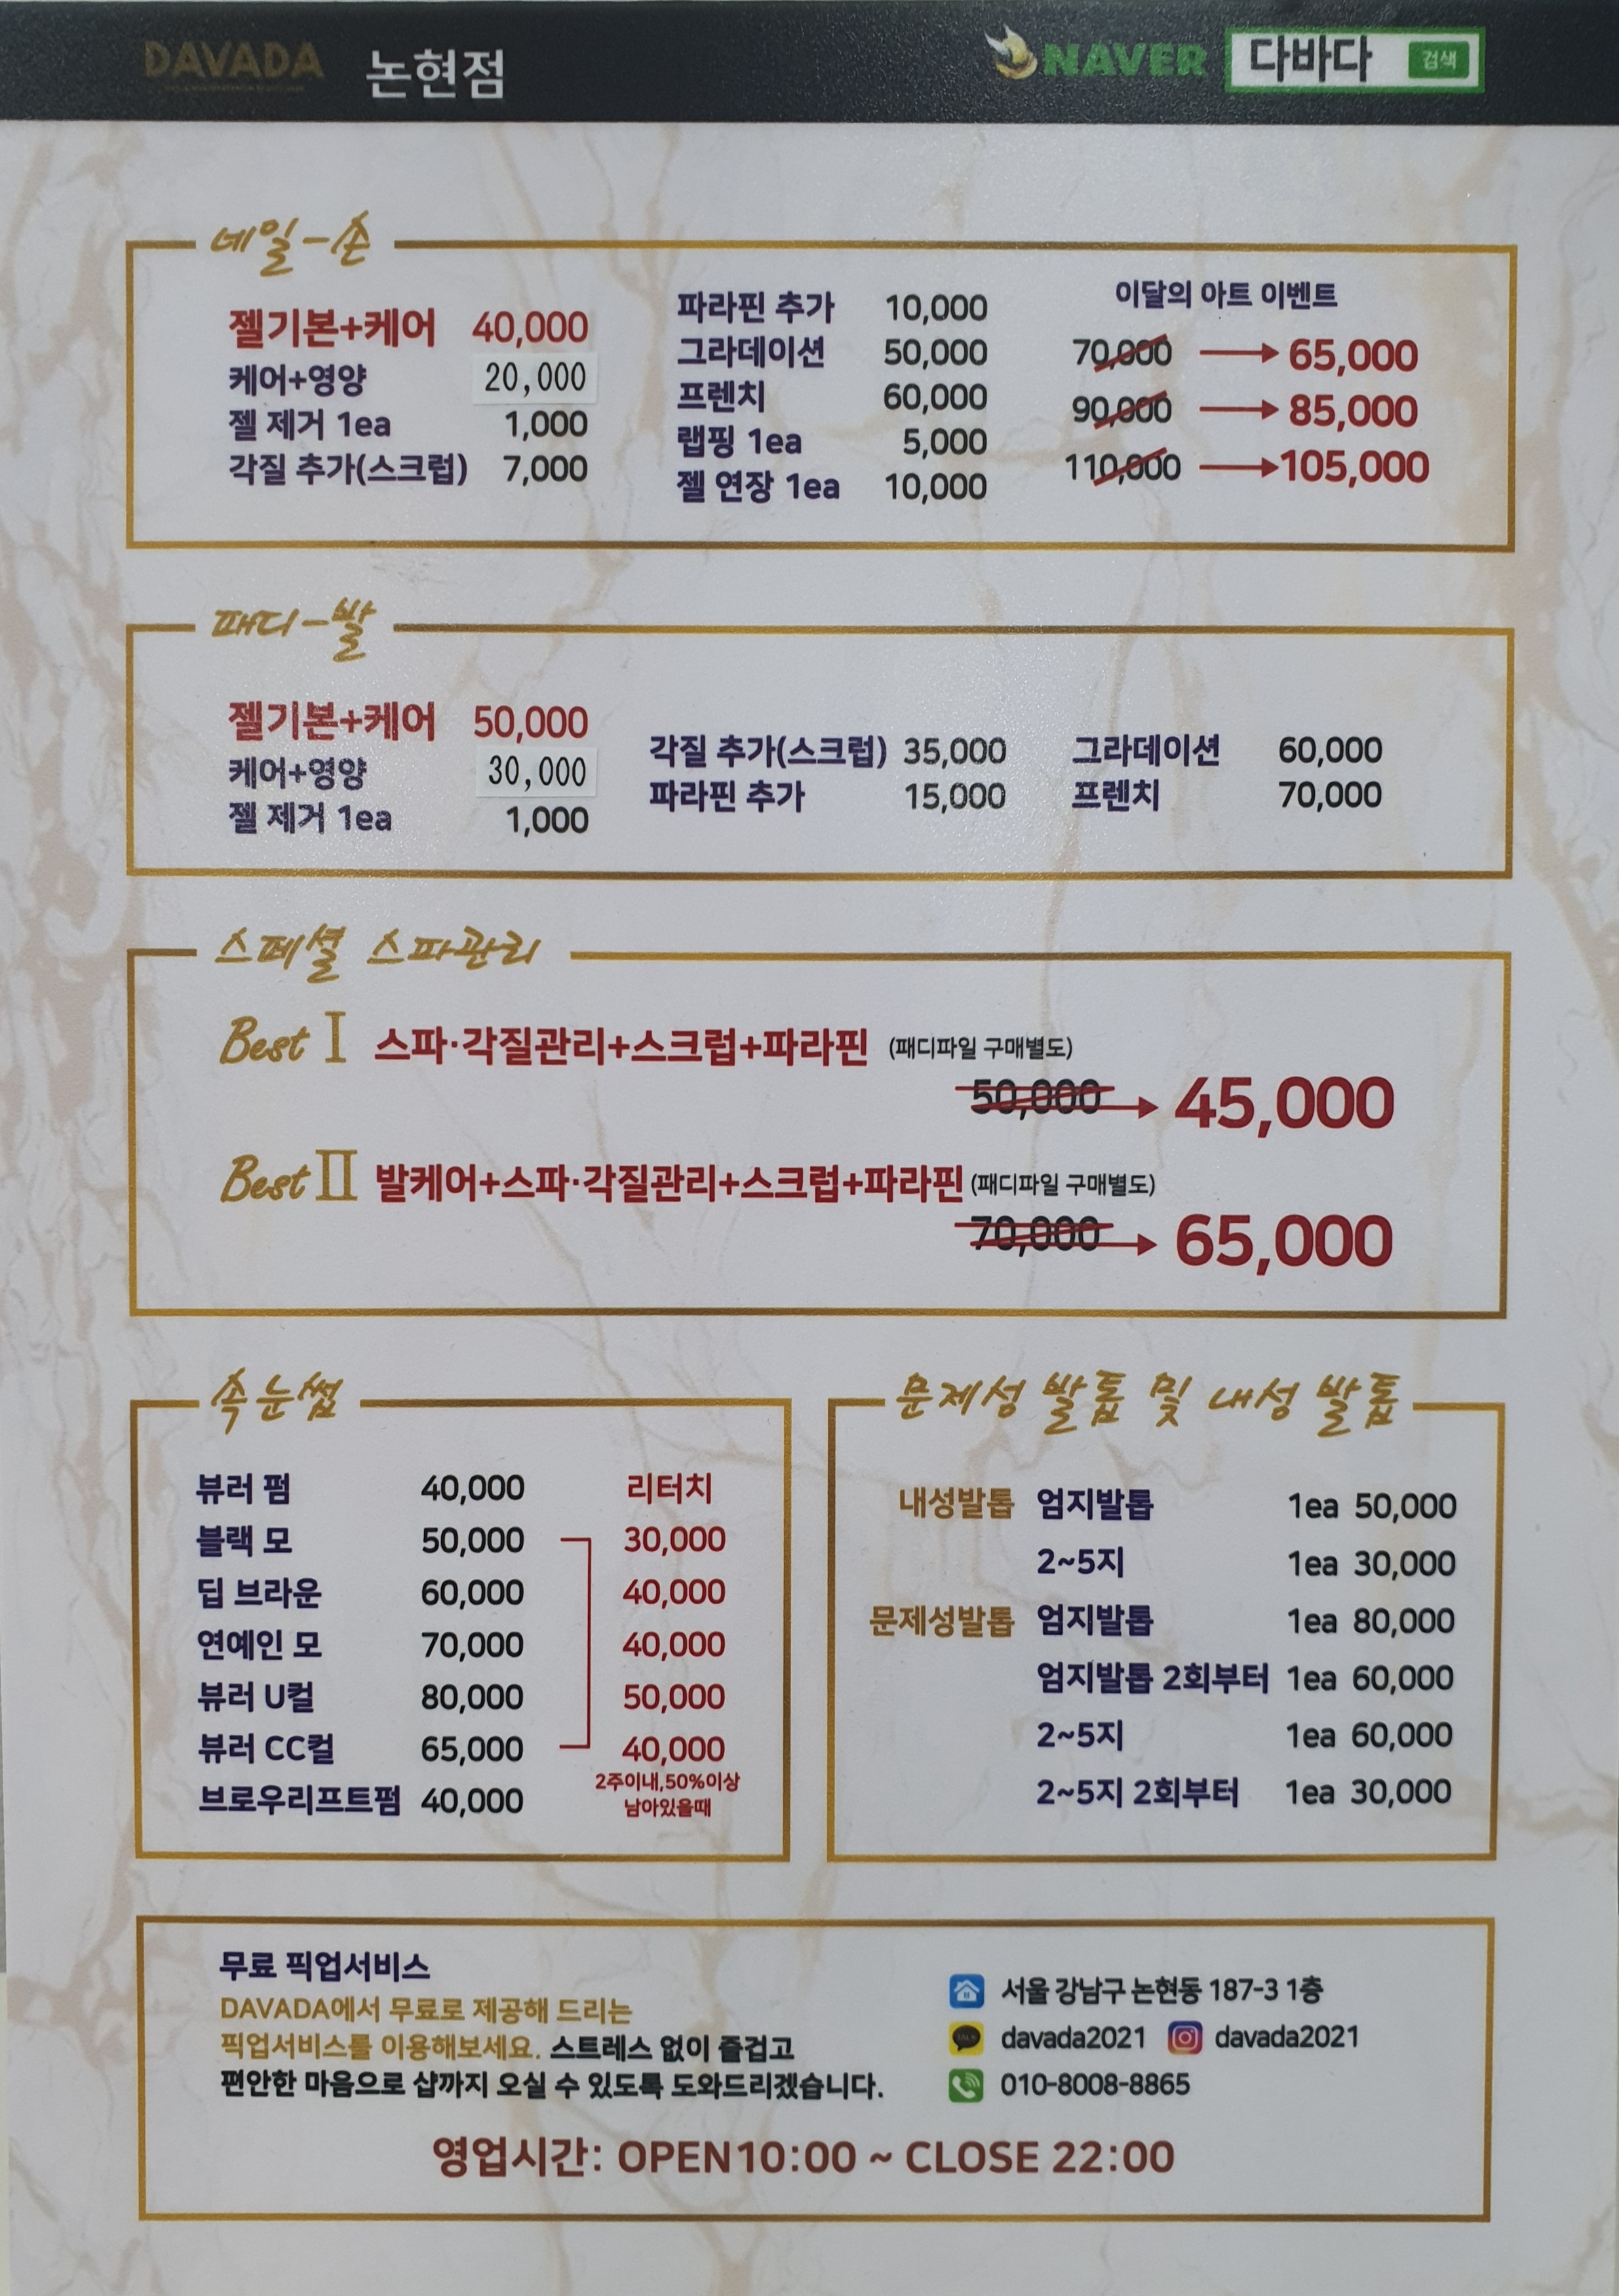 DAVADA 논현점
NAVER 다바다 검색
네일-손
젤기본+케어 40,000
케어+영양 20,000
젤 제거 1ea 1,000
각질 추가(스크럽) 7,000
파라핀 추가 10,000
그라데이션 50,000
프렌치 60,000
랩핑 1ea 5,000
젤 연장 1ea 10,000
이달의 아트 이벤트
70,000 → 65,000
90,000 → 85,000
110,000 → 105,000
패디-발
젤기본+케어 50,000
케어+영양 30,000
젤 제거 1ea 1,000
각질 추가(스크럽) 35,000
파라핀 추가 15,000
그라데이션 60,000
프렌치 70,000
스페셜 스파관리
Best Ⅰ 스파·각질관리+스크럽+파라핀 (패디파일 구매별도)
50,000 → 45,000
Best Ⅱ 발케어+스파·각질관리+스크럽+파라핀 (패디파일 구매별도)
70,000 → 65,000
속눈썹
뷰러 펌 40,000 리터치
블랙 모 50,000 30,000
딥 브라운 60,000 40,000
연예인 모 70,000 40,000
뷰러 U컬 80,000 50,000
뷰러 CC컬 65,000 40,000
브로우리프트펌 40,000
2주이내,50%이상
남아있을때
문제성 발톱 및 내성 발톱
내성발톱 엄지발톱 1ea 50,000
2~5지 1ea 30,000
문제성발톱 엄지발톱 1ea 80,000
엄지발톱 2회부터 1ea 60,000
2~5지 1ea 60,000
2~5지 2회부터 1ea 30,000
무료 픽업서비스
DAVADA에서 무료로 제공해 드리는
픽업서비스를 이용해보세요. 스트레스 없이 즐겁고
편안한 마음으로 샵까지 오실 수 있도록 도와드리겠습니다.
서울 강남구 논현동 187-3 1층
davada2021 davada2021
010-8008-8865
영업시간: OPEN10:00 ~ CLOSE 22:00